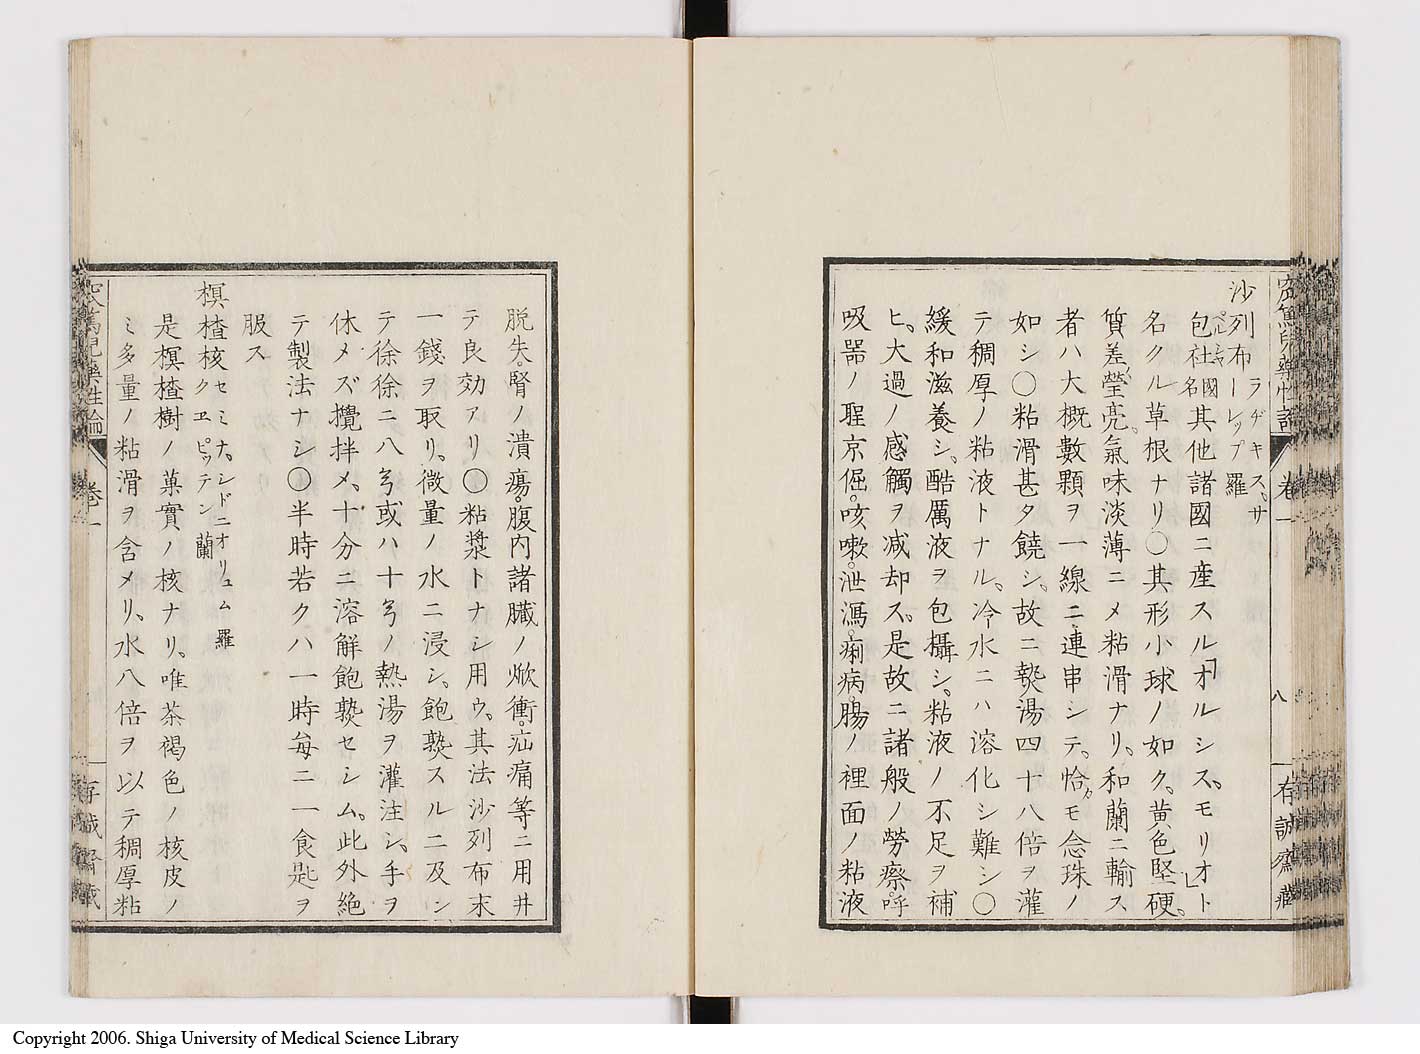 沙列布 ラヂキス、サーレップ 羅
包社 ペルシヤ國名 其他諸國ニ産スル「オルシス、モリオト」
名クル草根ナリ〇其形小球ノ如ク、黄色堅硬、
質差瑩亮、氣味淡薄ニメ粘滑ナリ、和蘭ニ輸ス
者ハ大概數顆ヲ一線ニ連串シテ、恰カモ念珠ノ
如シ〇粘滑甚タ饒シ、故ニ𤍠湯四十八倍ヲ灌
テ稠厚ノ粘液トナル、冷水ニハ溶化シ難シ〇
緩和滋養シ、酷厲液ヲ包攝シ、粘液ノ不足ヲ補
ヒ、大過ノ感觸ヲ減却ス、是故ニ諸般ノ勞瘵、呼
吸噐ノ聖京倔、咳嗽、泄瀉、痢病、腸ノ裡面ノ粘液
卷一
八
存誠齋藏
脱失、腎ノ潰瘍、腹内諸臓ノ焮衝、疝痛等ニ用井
テ良効アリ〇粘漿トナシ用ウ、其法沙列布末
一錢ヲ取リ、微量ノ水ニ浸シ、飽𤍠スルニ及ン
テ徐徐ニ八弓或ハ十弓ノ熱湯ヲ灌注シ、手ヲ
休メズ攪拌メ、十分ニ溶解飽𤍠セシム、此外絶
テ製法ナシ〇半時若クハ一時毎ニ一食匙ヲ
服ス
榠樝核 セミナ、シドニオリュム 羅 クヱピッテン 蘭
是榠樝樹ノ菓實ノ核ナリ、唯茶褐色ノ核皮ノ
ミ多量ノ粘滑ヲ含メリ、水八倍ヲ以テ稠厚粘
窊篤兒藥性論
卷一
Copyright 2006. Shiga University of Medical Science Library